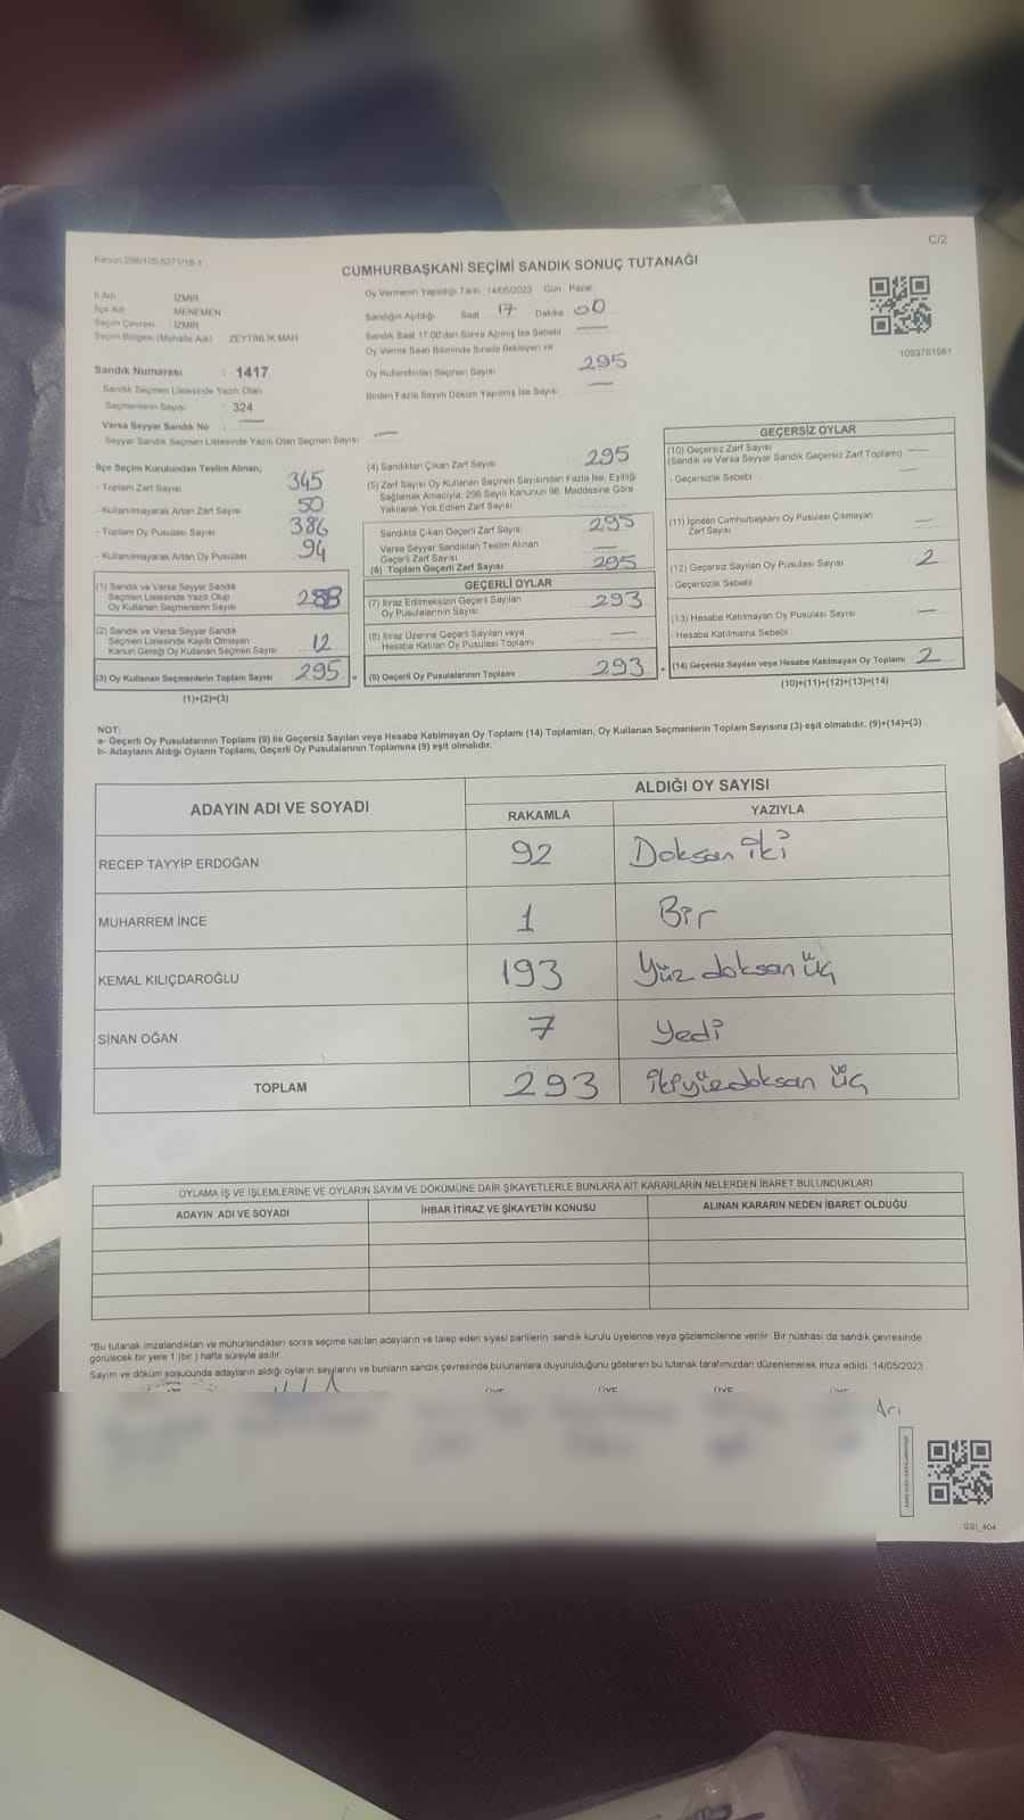 C/2
CUMHURBAŞKANI SEÇİMİ SANDIK SONUÇ TUTANAĞI
İl Adı İZMİR
İlçe Adı MENEMEN
Seçim Çevresi İZMİR
Seçim Bölgesi (Mahalle Adı) ZEYTİNLİK MAH
Oy Vermenin Yapıldığı Tarih 14/05/2023 Gün Pazar
Sandığın Açıldığı Saat 17 Dakika 00
Sandık Saat 17:00'dan Sonra Açılmış İse Sebebi —
Oy Kullandırılan Seçmen Sayısı 295
Birden Fazla Sayım Döküm Yapılmış İse Sayısı —
Sandık Numarası : 1417
Sandık Seçmen Listesinde Yazılı Olan
Seçmenlerin Sayısı : 324
Varsa Seyyar Sandık No —
Seyyar Sandık Seçmen Listesinde Yazılı Olan Seçmen Sayısı —
İlçe Seçim Kurulundan Teslim Alınan;
- Toplam Zarf Sayısı 345
- Kullanılmayarak Artan Zarf Sayısı 50
- Toplam Oy Pusulası Sayısı 386
- Kullanılmayarak Artan Oy Pusulası 94
(1) Sandık ve Varsa Seyyar Sandık
Seçmen Listesinde Yazılı Olup
Oy Kullanan Seçmenlerin Sayısı
(2) Sandık ve Varsa Seyyar Sandık
Seçmen Listesinde Kayıtlı Olmayan
Kanun Gereği Oy Kullanan Seçmen Sayısı 12
(3) Oy Kullanan Seçmenlerin Toplam Sayısı 295
(1)+(2)=(3)
(4) Sandıktan Çıkan Zarf Sayısı 295
(5) Zarf Sayısı Oy Kullanan Seçmen Sayısından Fazla İse, Eşitliği
Sağlamak Amacıyla, 298 Sayılı Kanunun 98. Maddesine Göre
Yakılarak Yok Edilen Zarf Sayısı
Sandıkta Çıkan Geçerli Zarf Sayısı 295
Varsa Seyyar Sandıktan Teslim Alınan
Geçerli Zarf Sayısı —
(6) Toplam Geçerli Zarf Sayısı 295
GEÇERLİ OYLAR
(7) İtiraz Edilmeksizin Geçerli Sayılan
Oy Pusulalarının Sayısı 293
(8) İtiraz Üzerine Geçerli Sayılan veya
Hesaba Katılan Oy Pusulası Toplamı —
(9) Geçerli Oy Pusulalarının Toplamı 293
GEÇERSİZ OYLAR
(10) Geçersiz Zarf Sayısı —
(Sandık ve Varsa Seyyar Sandık Geçersiz Zarf Toplamı)
- Geçersizlik Sebebi —
(11) İçinden Cumhurbaşkanı Oy Pusulası Çıkmayan
Zarf Sayısı —
(12) Geçersiz Sayılan Oy Pusulası Sayısı 2
Geçersizlik Sebebi
(13) Hesaba Katılmayan Oy Pusulası Sayısı —
- Hesaba Katılmama Sebebi
(14) Geçersiz Sayılan veya Hesaba Katılmayan Oy Toplamı 2
(10)+(11)+(12)+(13)=(14)
NOT:
a- Geçerli Oy Pusulalarının Toplamı (9) ile Geçersiz Sayılan veya Hesaba Katılmayan Oy Toplamı (14) Toplamları, Oy Kullanan Seçmenlerin Toplam Sayısına (3) eşit olmalıdır. (9)+(14)=(3)
b- Adayların Aldığı Oyların Toplamı, Geçerli Oy Pusulalarının Toplamına (9) eşit olmalıdır.
ADAYIN ADI VE SOYADI
ALDIĞI OY SAYISI
RAKAMLA YAZIYLA
RECEP TAYYİP ERDOĞAN 92 Doksan iki
MUHARREM İNCE 1 Bir
KEMAL KILIÇDAROĞLU 193 Yüz doksan üç
SİNAN OĞAN 7 Yedi
TOPLAM 293 ikiyüzdoksan üç
OYLAMA İŞ VE İŞLEMLERİNE VE OYLARIN SAYIM VE DÖKÜMÜNE DAİR ŞİKAYETLERLE BUNLARA AİT KARARLARIN NELERDEN İBARET BULUNDUKLARI
ADAYIN ADI VE SOYADI İHBAR İTİRAZ VE ŞİKAYETİN KONUSU ALINAN KARARIN NEDEN İBARET OLDUĞU
*Bu tutanak imzalandıktan ve mühürlendikten sonra seçime katılan adayların ve talep eden siyasi partilerin sandık kurulu üyelerine veya gözlemcilerine verilir. Bir nüshası da sandık çevresinde
görülecek bir yere 1 (bir) hafta süreyle asılır.
Sayım ve döküm sonucunda adayların aldığı oyların sayılarını ve bunların sandık çevresinde bulunanlara duyurulduğunu gösteren bu tutanak tarafımızdan düzenlenerek imza edildi. 14/05/2023
Arı